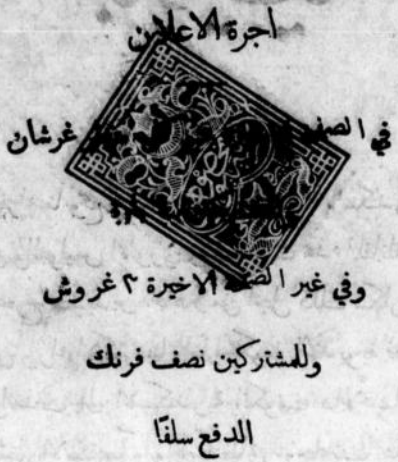 اجرة الاعلان
في الصفحة غرشان
وفي غير الصفحة الاخيرة ٢ غروش
وللمشتركين نصف فرنك
الدفع سلفًا